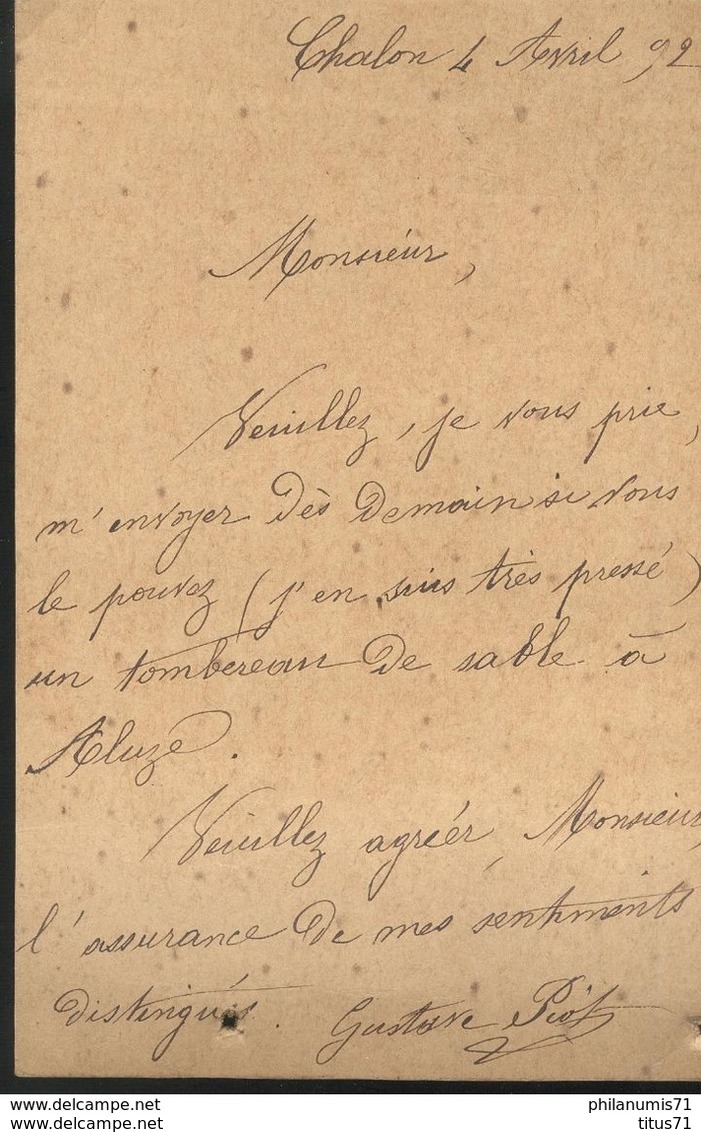 Chalon 4 Avril 92
Monsieur,
Veuillez, je vous prie,
m'envoyer dès demain si vous
le pouvez (j'en suis très pressé)
un tombereau de sable à
Aluze.
Veuillez agréer, Monsieur,
l'assurance de mes sentiments
distingués. Gustave Piot
www.delcampe.net philanumis71
www.delcampe.net titus71